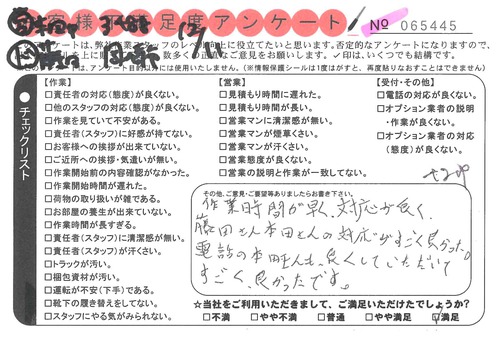 お客様満足度アンケート
№ 065445
このアンケートは、弊社作業スタッフのレベル向上に役立てたいと思います。否定的なアンケートになりますので、
を上に 敢えて数多くの正直なご意見をお願いします。✓印は、いくつでも結構です。
このアンケートは、アンケート目的以外には使用いたしません。(情報保護シールは1度はがすと、再度貼りなおすことはできません)
チェックリスト
【作業】
□責任者の対応(態度)が良くない。
□他のスタッフの対応(態度)が良くない。
□作業を見ていて不安がある。
□責任者(スタッフ)に好感が持てない。
□お客様への挨拶が出来ていない。
□ご近所への挨拶・気遣いが無い。
□作業開始前の内容確認がなかった。
□作業開始時間が遅れた。
□荷物の取り扱いが雑である。
□お部屋の養生が出来ていない。
□作業時間が長すぎる。
□責任者(スタッフ)に清潔感が無い。
□責任者(スタッフ)が汗くさい。
□トラックが汚い。
□梱包資材が汚い。
□運転が不安(下手)である。
□靴下の履き替えをしてない。
□スタッフにやる気がみられない。
【営業】
□見積もり時間に遅れた。
□見積もり時間が長い。
□営業マンに清潔感が無い。
□営業マンが煙草くさい。
□営業マンが汗くさい。
□営業態度が良くない。
□営業の説明と作業が一致してない。
【受付・その他】
□電話の対応が良くない。
□オプション業者の説明
・作業が良くない。
□オプション業者の対応
(態度)が良くない。
その他、ご意見・ご要望等ありましたらお書き下さい。
作業時間が早く、対応が良く、
藤田さん本田さんの対応がすごく良かった。
電話の本田さんも良くしていただいて
すごく、良かったです。
☆当社をご利用いただきまして、ご満足いただけたでしょうか?
□不満 □やや不満 □普通 □やや満足 □満足